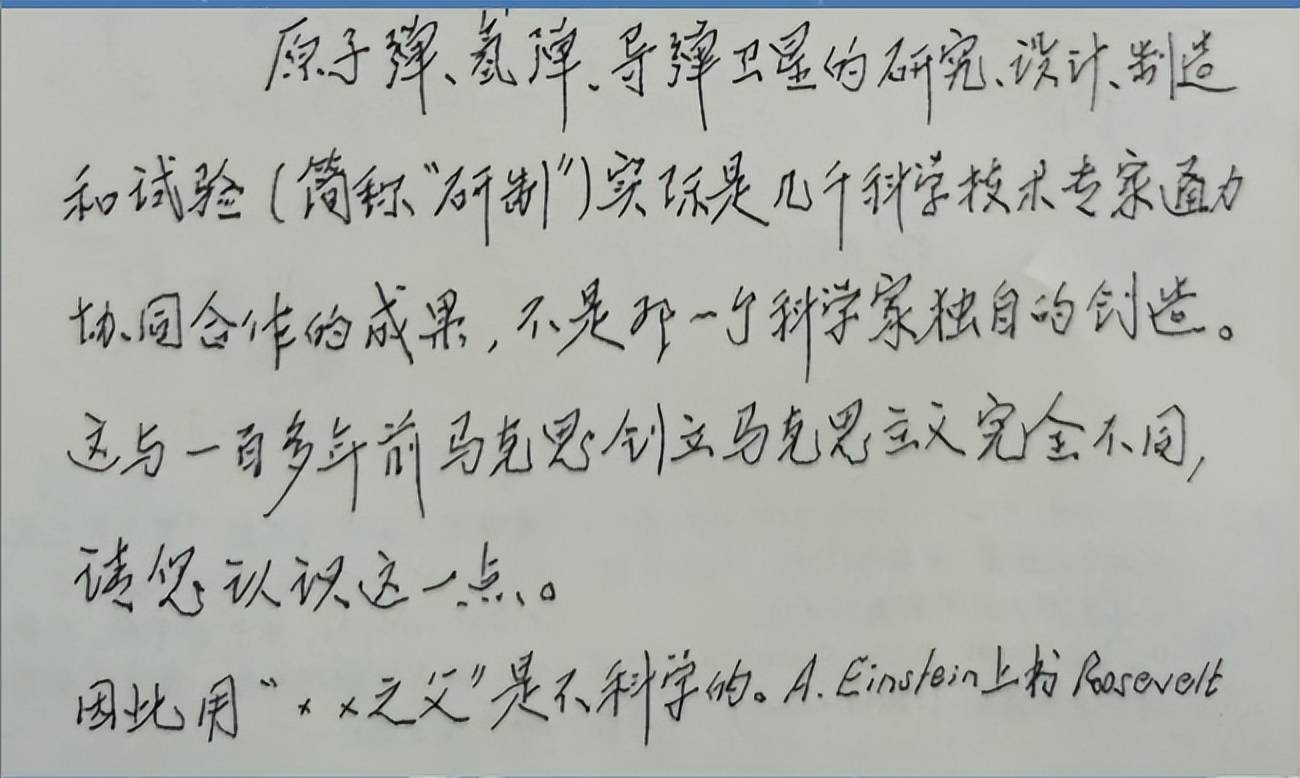 原子弹、氢弹、导弹卫星的研究、设计、制造
和试验（简称“研制”）实际是几千科学技术专家通力
协同合作的成果，不是那一个科学家独自的创造。
这与一百多年前马克思创立马克思主义完全不同，
请您认识这一点。
因此用“××之父”是不科学的。A. Einstein上书 Roosevelt